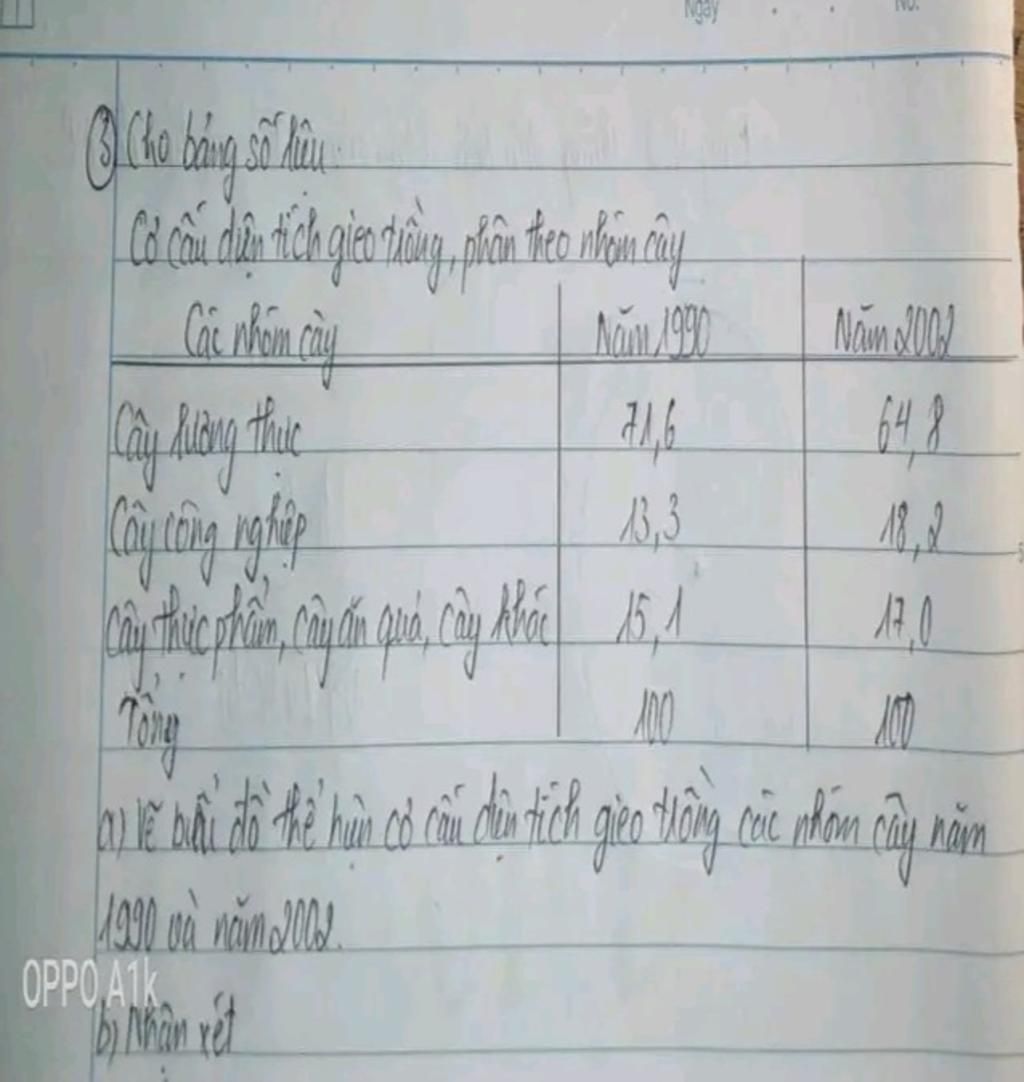 Ngày
No.
③ Cho bảng số liệu.
Cơ cấu diện tích gieo trồng, phân theo nhóm cây
Các nhóm cây Năm 1990 Năm 2002
Cây lương thực 71,6 64,8
Cây công nghiệp 13,3 18,2
Cây thực phẩm, cây ăn quả, cây khác 15,1 17,0
Tổng 100 100
a) Vẽ biểu đồ thể hiện cơ cấu diện tích gieo trồng các nhóm cây năm
1990 và năm 2002.
OPPO A1k
b) Nhận xét